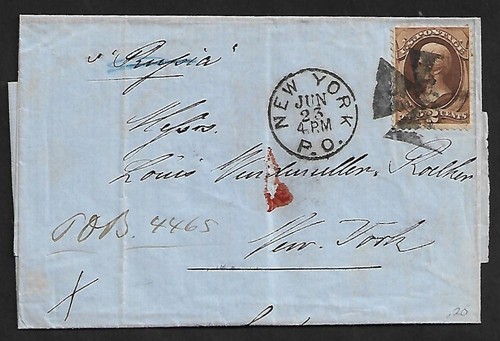 p "Russia"
NEW YORK
JUN
23
4 PM
P.O.
U.S. POSTAGE
2 CENTS
Messrs.
Louis
P.O.B. 4465
New York
X
.20